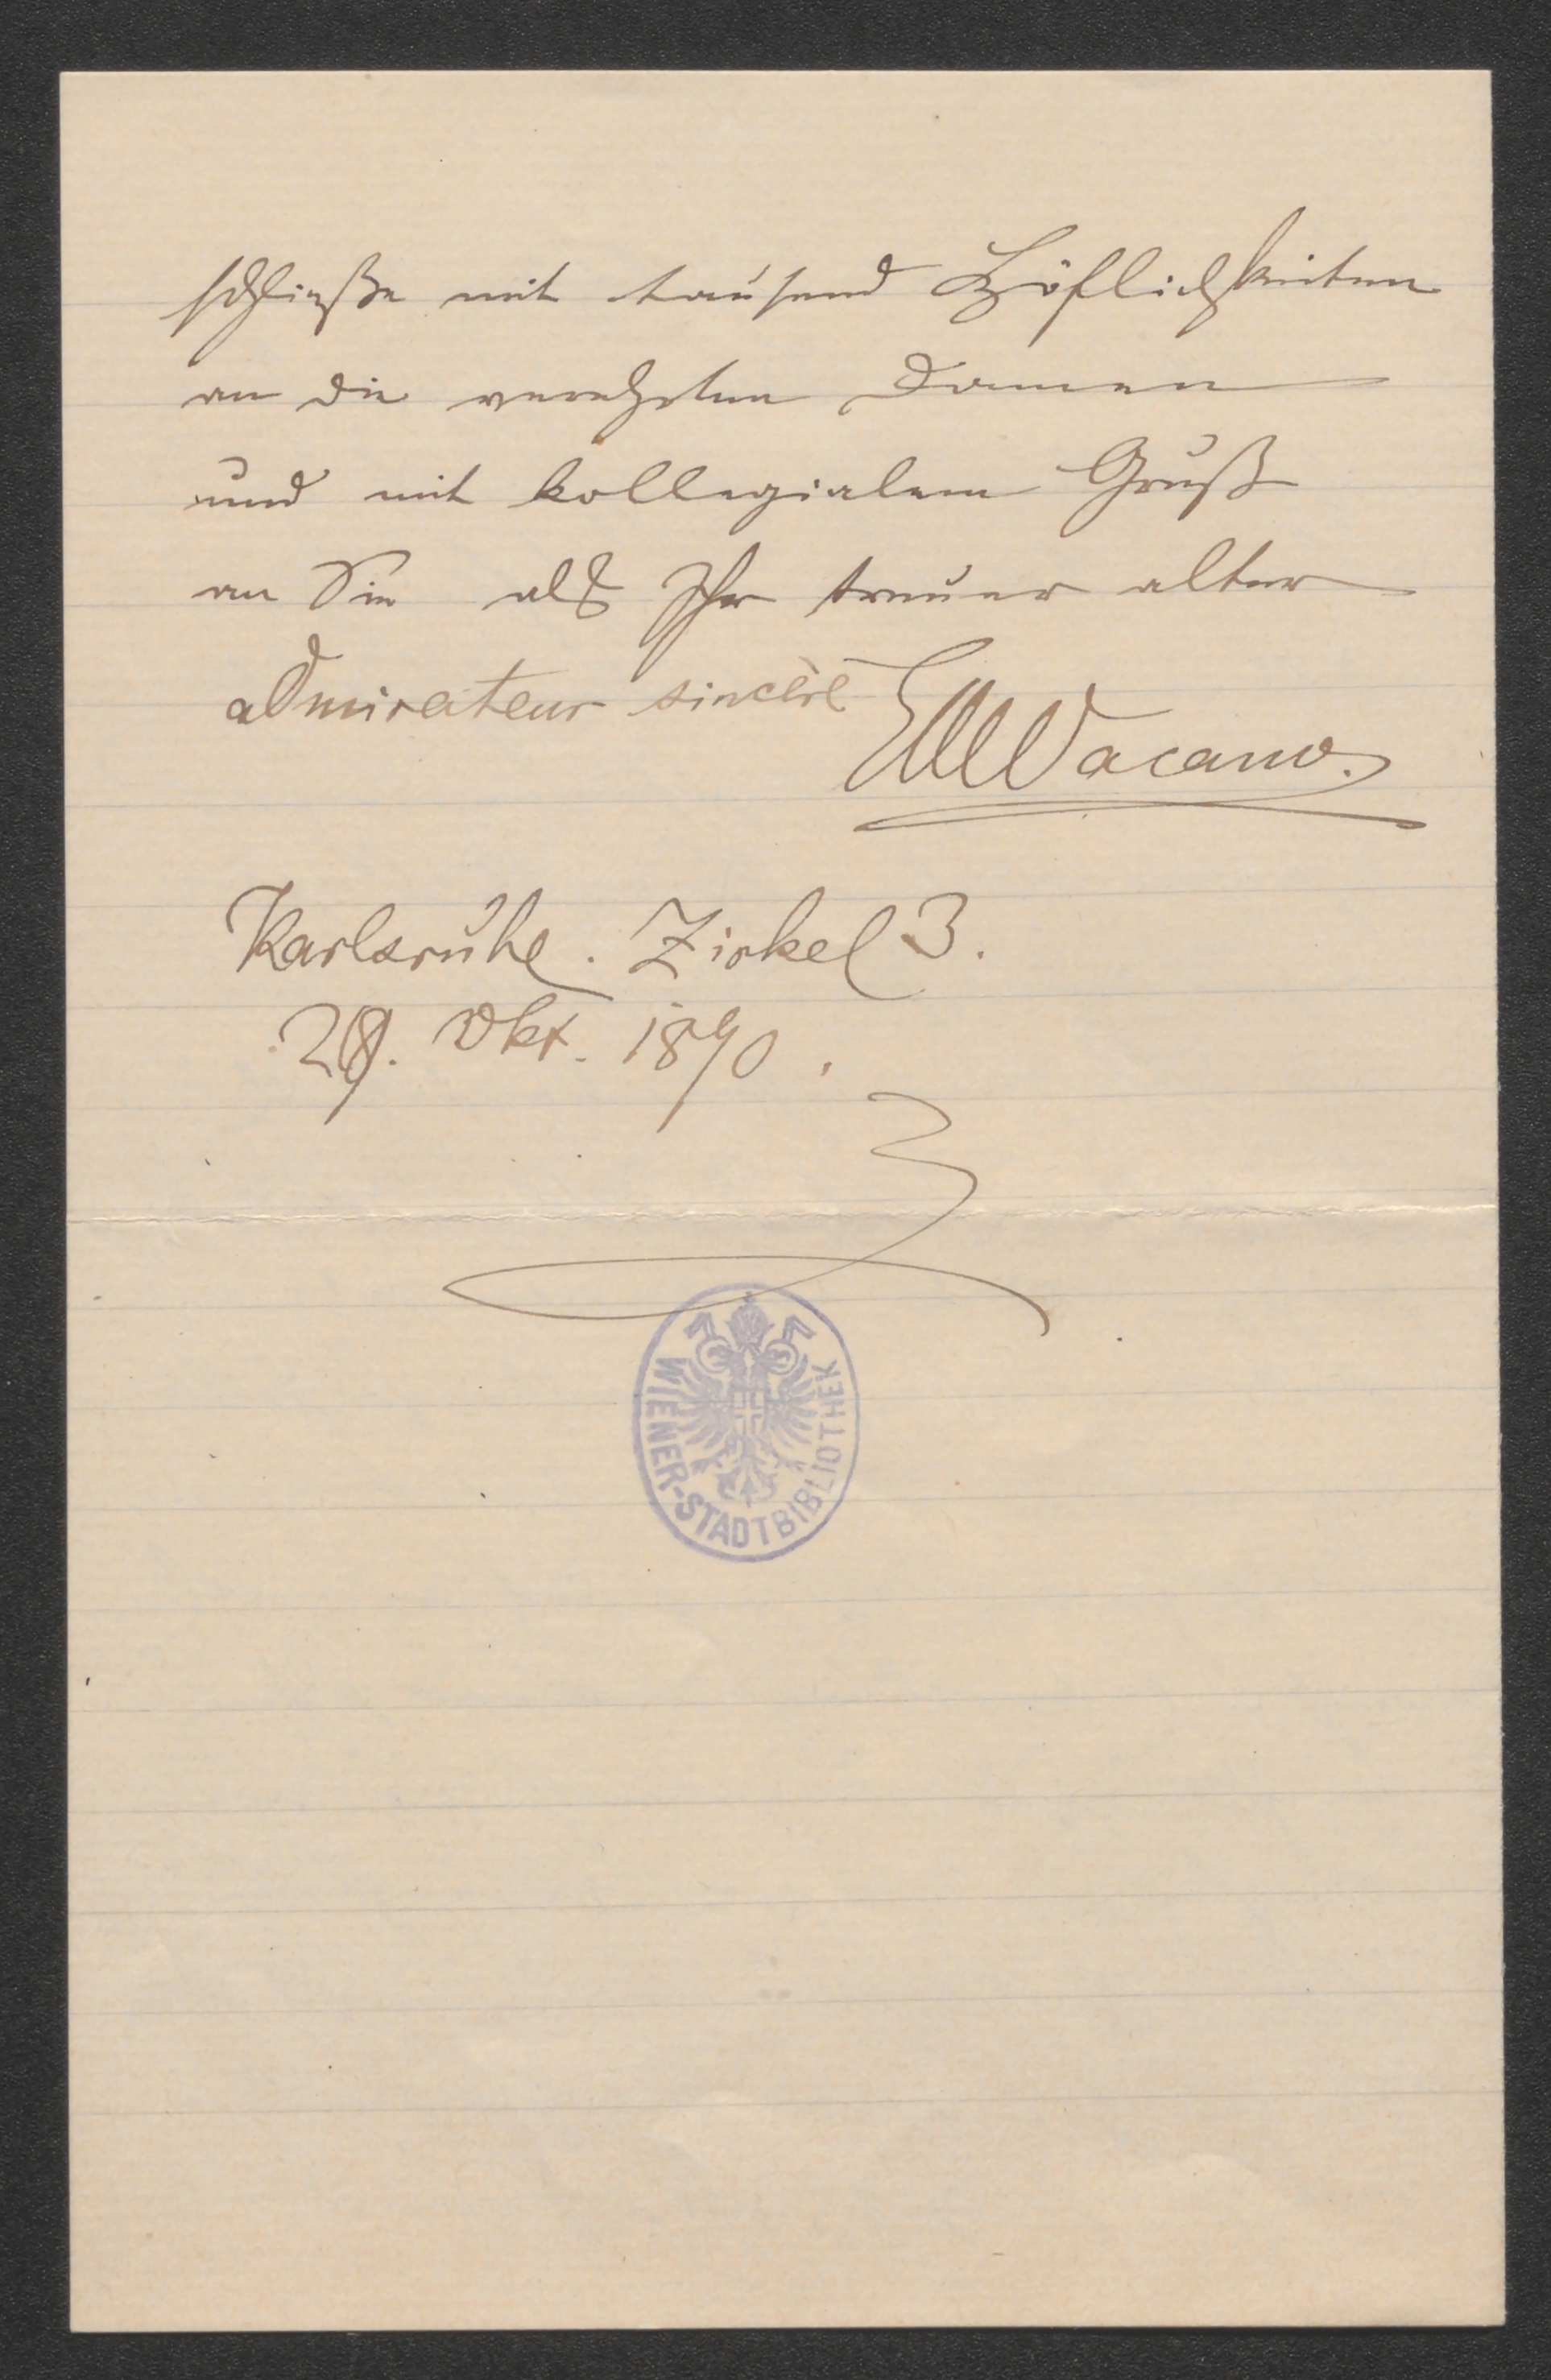 schließe mit tausend Höflichkeiten
an die verehrten Damen
und mit kollegialem Gruß
an Sie als Ihr treuer alter
admirateur sincère
EMVacano.
Karlsruhe. Zirkel 3.
Okt. 1890.
WIENER-STADTBIBLIOTHEK